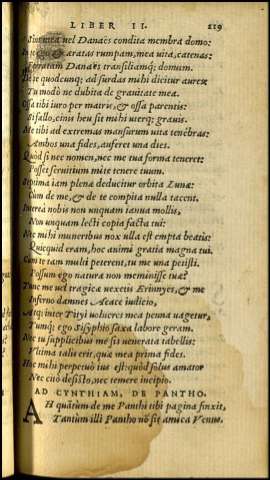 LIBER II. 219
Sint mea vel Danaës condita membra domo:
In te ego & æratas rumpam, mea vita, catenas:
Ferratam Danaës transiliamq; domum.
De te quodcunq; ad surdas mihi dicitur aures:
Tu modò ne dubita de gravitate mea.
Ossa tibi iuro per matris, & ossa parentis:
Si fallo, cinis heu sit mihi uterq; gravis.
Me tibi ad extremas mansurum vita tenebras:
Ambos una fides, auferet una dies.
Quòd si nec nomen, nec me tua forma teneret:
Posset servitium mite tenere tuum.
Septima iam plenæ deducitur orbita Lunæ:
Cum de me, & de te compita nulla tacent.
Interea nobis non unquam ianua mollis,
Non unquam lecti copia facta tui:
Nec mihi muneribus nox ulla est empta beatis:
Quicquid eram, hoc animi gratia magna tui.
Cum te tam multi peterent, tu me una petisti.
Possum ego naturæ non meminisse tuæ?
Tunc me vel tragicæ vexetis Erinnyes, & me
Inferno damnes Aeace iudicio,
Atq; inter Tityi volucres mea penna vagetur,
Tumq; ego Sisyphio saxa labore geram.
Nec tu supplicibus me sis venerata tabellis:
Vltima talis erit, quæ mea prima fides.
Hoc mihi perpetuo ius est: quòd solus amator
Nec citò desisto, nec temere incipio.
AD CYNTHIAM, DE PANTHO.
AH quãtum de me Panthi tibi pagina finxit,
Tantùm illi Pantho nõ sit amica Venus.